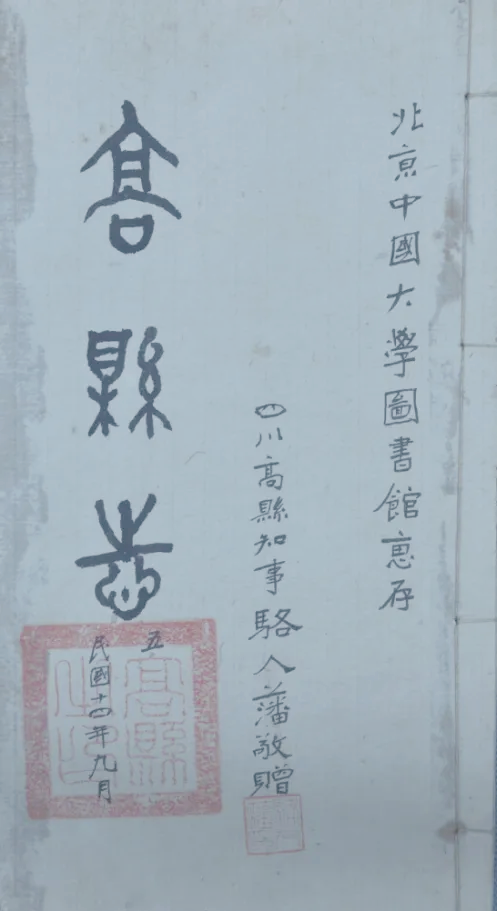 北京中國大學圖書館惠存
四川高縣知事駱人藩敬贈
高縣志
五
民國十四年九月
高縣之印